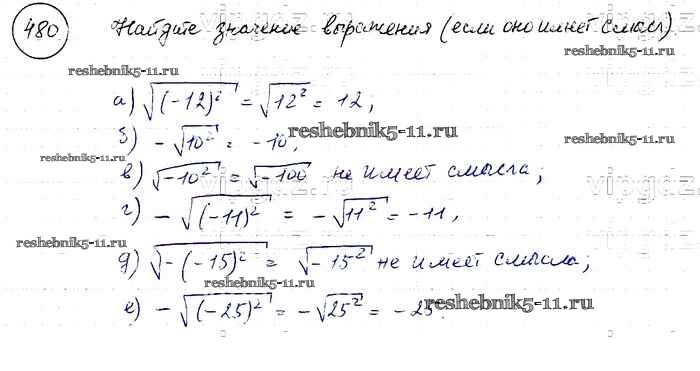 480 Найдите значение выражения (если оно имеет смысл)
reshebnik5-11.ru
reshebnik5-11.ru
а) √(-12)² = √12² = 12,
б) -√10² = -10,
reshebnik5-11.ru
reshebnik5-11.ru
reshebnik5-11.ru
в) √-10² = √-100 не имеет смысла;
vipgdz
vipgdz
г) -√(-11)² = -√11² = -11,
reshebnik5-11.ru
reshebnik5-11.ru
д) √-(-15)² = √-15² не имеет смысла;
reshebnik5-11.ru
е) -√(-25)² = -√25² = -25.
reshebnik5-11.ru